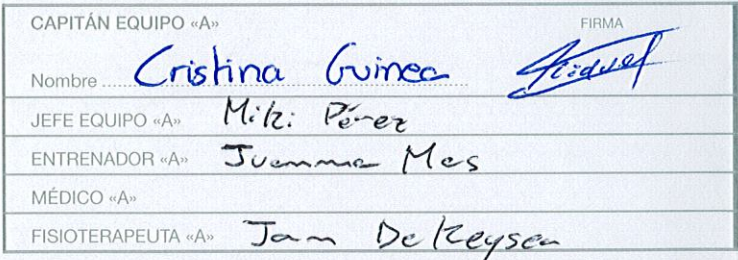 CAPITÁN EQUIPO «A» FIRMA
Nombre Cristina Guinea
JEFE EQUIPO «A» Miki Pérez
ENTRENADOR «A» Juanma Mas
MÉDICO «A»
FISIOTERAPEUTA «A» Jan De Keyser